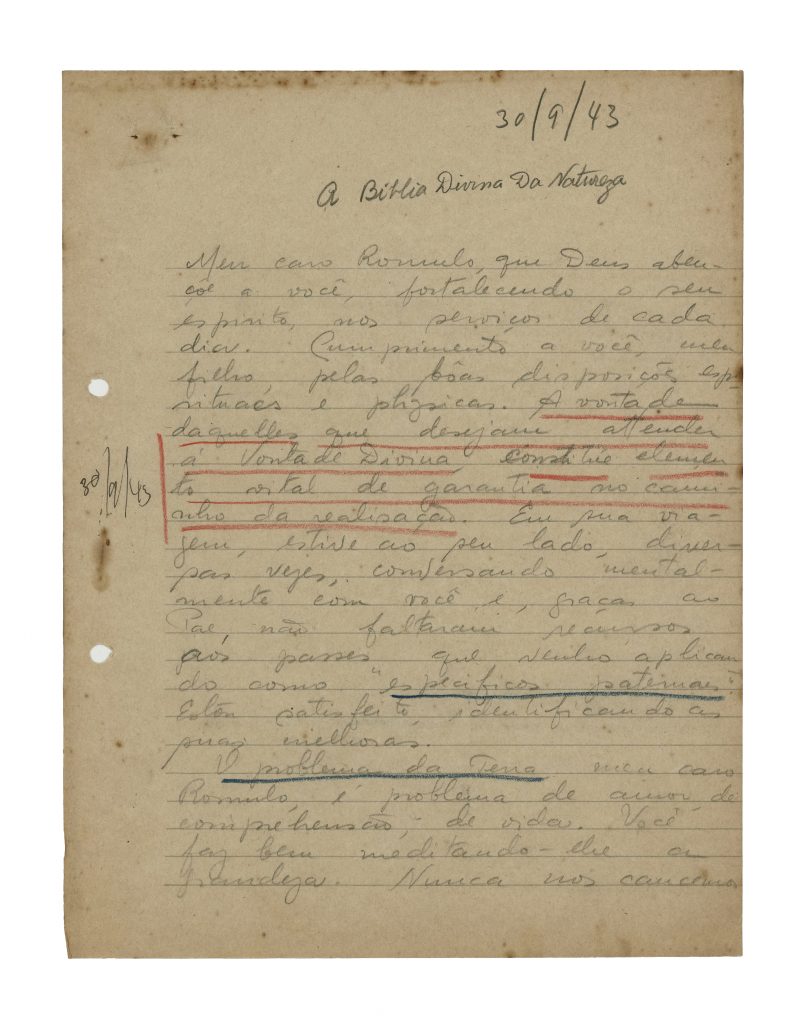 30/9/43
A Biblia Divina Da Natureza
Meu caro Romulo, que Deus aben-
çôe a você, fortalecendo o seu
espirito, nos serviços de cada
dia. Cumprimento a você, meu
filho, pelas bôas disposições esp-
rituaes e physicas. A vontade
daquelles que desejam attender
á Vontade Divina, constitue elemen
to vital de garantia no cami-
nho da realisação. Em sua via-
gem, estive ao seu lado, diver-
sas vezes, conversando mental-
mente com você e, graças ao
Pae, não faltaram recursos
aos passes que venho aplican
do como "especificos paternaes".
Estou satisfeito, identificando as
suas melhoras.
O problema da Terra meu caro
Romulo, é problema de amor, de
comprehensão, de vida. Você
faz bem meditando-lhe a
grandeza. Nunca nos cancemos
30/9/43